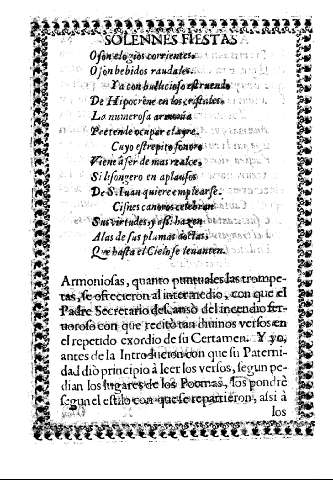 SOLENNES FIESTAS
O son elogios corrientes,
O son bebidos raudales.
Ya con bullicioso estruendo
De Hipocrene en los cristales.
La numerosa armonia
Pretende ocupar el ayre.
Cuyo estrepito sonoro
Viene à ser de mas realce,
Si lisongero en aplausos
De S. Iuan quiere emplearse.
Cisnes canoros celebran
Sus virtudes, y assi hazen
Alas de sus plumas doctas,
Que hasta el Cielo se leuanten.
Armoniosas, quanto puntuales las trompe-
tas, se ofrecieron al intermedio, con que el
Padre Secretario descansò del incendio fer-
uoroso con que recitò tan diuinos versos en
el repetido exordio de su Certamen. Y yo,
antes de la Introducion con que su Paterni-
dad diò principio à leer los versos, segun pe-
dian los lugares de los Poemas, los pondrè
segun el estilo con que se repartieron, assi à
los